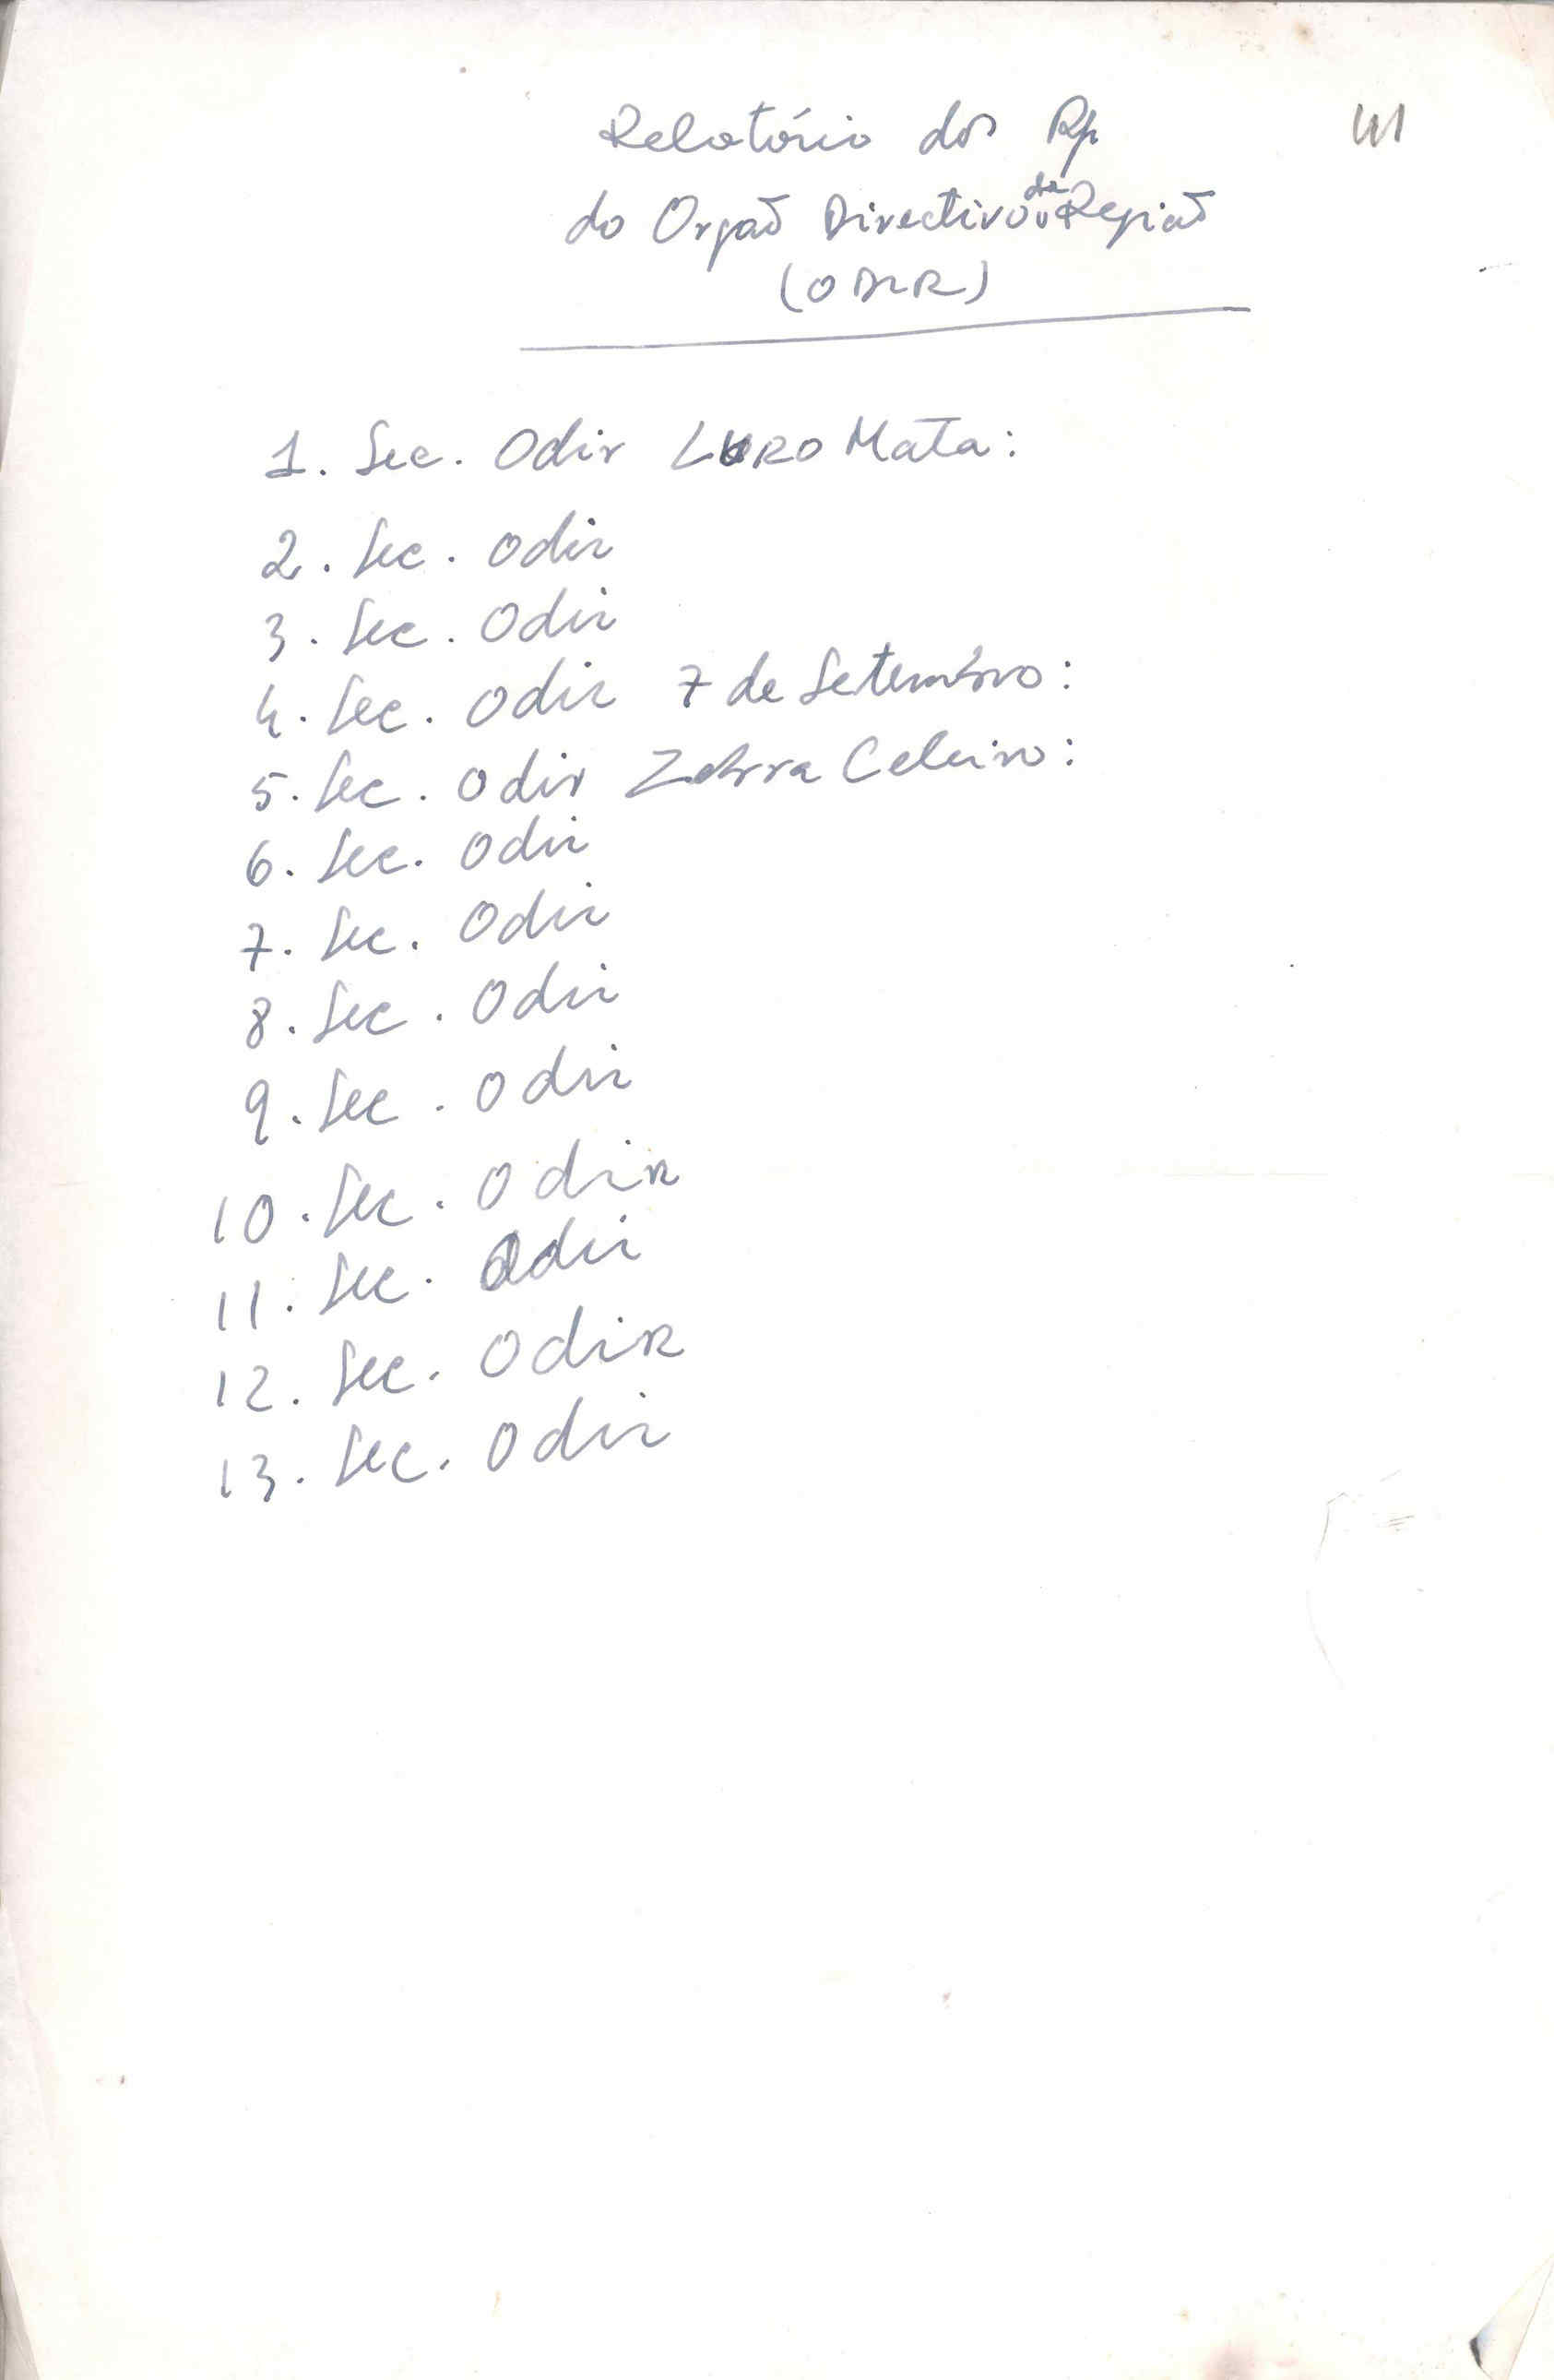 Relatório dos Rp
41
do Orgaõ Directivo da Regiaõ
(ODIR)
1. Sec. Odir LURO Mata:
2. Sec. Odir
3. Sec. Odir
4. Sec. Odir 7 de Setembro:
5. Sec. Odir Celeiro:
6. Sec. Odir
7. Sec. Odir
8. Sec. Odir
9. Sec. Odir
10. Sec. Odir
11. Sec. Odir
12. Sec. OdiR
13. Sec. Odir